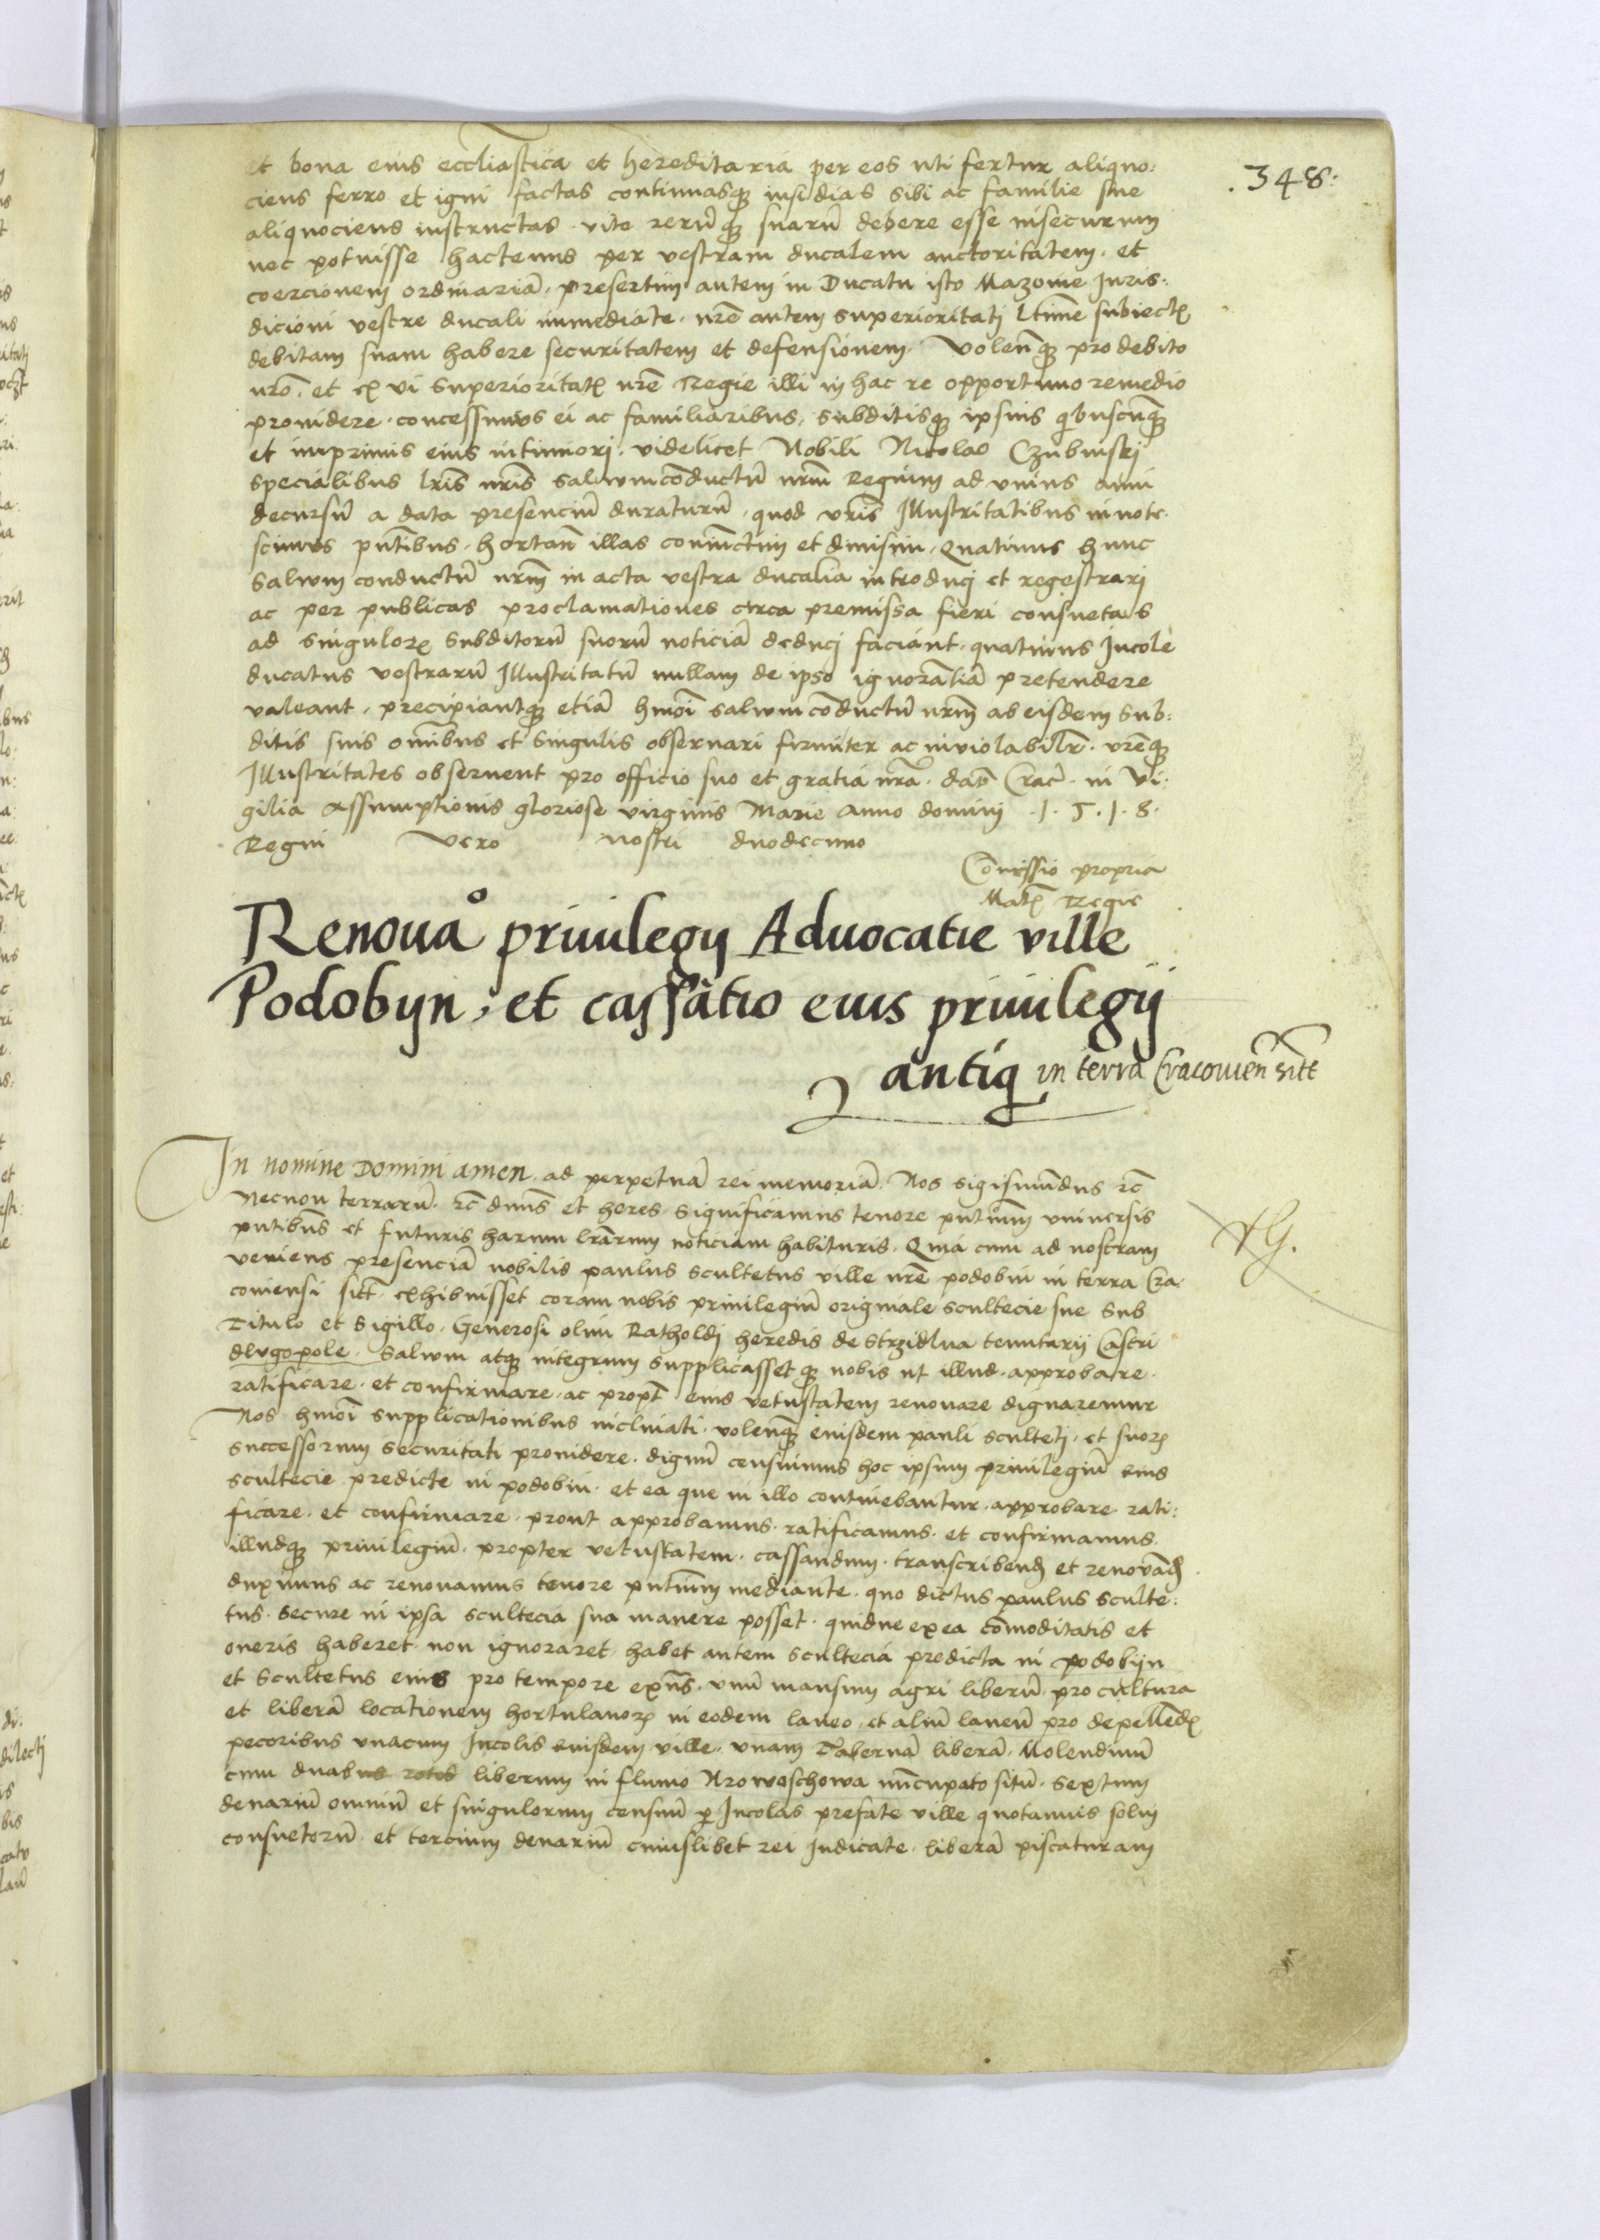 .348.
et bona eius eccliastica et hereditaria per eos uti fertur aliquo:
ciens ferro et igni factas continuasq insidias sibi ac familie sue
aliquociens instructas. vite rerūq suarū debere esse insecurum
nec potuisse hactenus per vestram ducalem auctoritatem. et
coercionem ordinariā. presertim autem in Ducatu isto Mazouie Juris:
dicioni vestre ducali immediate. nrē autem superioritati ltīme subiect
debitam suam habere securitatem et defensionem. Volenq pro debito
nrō. et ex vi superioritat nrē Regie illi in hac re opportuno remedio
prouidere. concessimus ei ac familiaribus, subditisq ipsius qbuscūq
et inprimis eius intimiori. videlicet Nobili Nicolao Czubinskj
specialibus lrīs nrīs saluumcōductū nrm̄ Regium ad vnius anni
decursū a data presenciū duraturū. quod vrīs Illustritatibus innote:
scimus pntībus. hortan̄ illas coniūctim et diuisim. Quatinus hunc
saluum conductū nrm̄ in acta vestra ducalia introducj et regestrarj
ac per publicas proclamationes circa premissa fieri consuetas
ad singulor subditorū suorū noticiā deducj faciant. quatinus Jncole
ducatus vestrarū Illustritatū nullam de ipso ignorātiā pretendere
valeant. precipiantq etiā hmōi saluumcōductū nrm̄ ab eisdem sub:
ditis suis omībus et singulis obseruari firmiter ac inviolabilr̄. vrēq
Illustritates obseruent pro officio suo et gratia nrā. dat̄ Crac̄. in Vi:
gilia Assumptionis gloriose virginis Marie Anno domini .1.5.1.8.
Regni vero nostri duodecimo
Com̄issio propria
Mat Regie
Renouao priuilegij Aduocatie ville
Podobijn, et cassatio eius priuilegij
antiq in terra Cracouien̄ sitt̄
Jn nomine Domini amen. ad perpetuā rei memoriā. Nos sigismūdus rc̄
Necnon terrarū. rc̄ dnūs et heres. significamus tenore pntiūm vniuersis
pntibus et futuris harum lrārum noticiam habituris. Quia cum ad nostram
veniens presenciā nobilis paulus scultetus ville nrē podobin in terra Cra:
couiensi sitt̄. exhibuisset coram nobis priuilegiū originale scultecie sue sub
Titulo et Sigillo. Generosi olim Ratholdj heredis de Strzidlua tenutarij Castri
dlvgopole. saluum atq integrum supplicasset q nobis ut illud. approbare.
ratificare. et confirmare. ac propt̄ eius vetustatem renouare dignaremur
Nos hmōi supplicationibus inclinati. volenq eiusdem pauli scultetj. et suor
successorum securitati prouidere. dignū censuimus hoc ipsum priuilegiū eius
scultecie predicte in podobin. et ea que in illo continebantur. approbare rati:
ficare. et confirmare. prout approbamus. ratificamus. et confirmamus.
illudq priuilegiū. propter vetustatem. cassandum. transcribend et renouād
duximus ac renouamus tenore pntiūm mediante. quo dictus paulus sculte:
tus. secure in ipsa scultecia sua manere posset. quidue ex ea cōmoditatis et
oneris haberet. non ignoraret. habet autem scultecia predicta in podobijn
et scultetus eius pro tempore exn̄s. vnū mansum agri liberū. pro cultura
et liberā locationem hortulanor in eodem laneo. et aliū laneū pro depellēd
pecoribus vnacum Jncolis eiusdem ville. vnam Tabernā liberā. Molendinū
cum duabus rotis liberum in fluuio Mrowoschowa nūcupato sitū. sextum
denariū omniū et singulorum censuū p Jncolas prefate ville quotannis solui
consuetorū. et tercium denariū cuiuslibet rei Judicate. liberā piscaturam